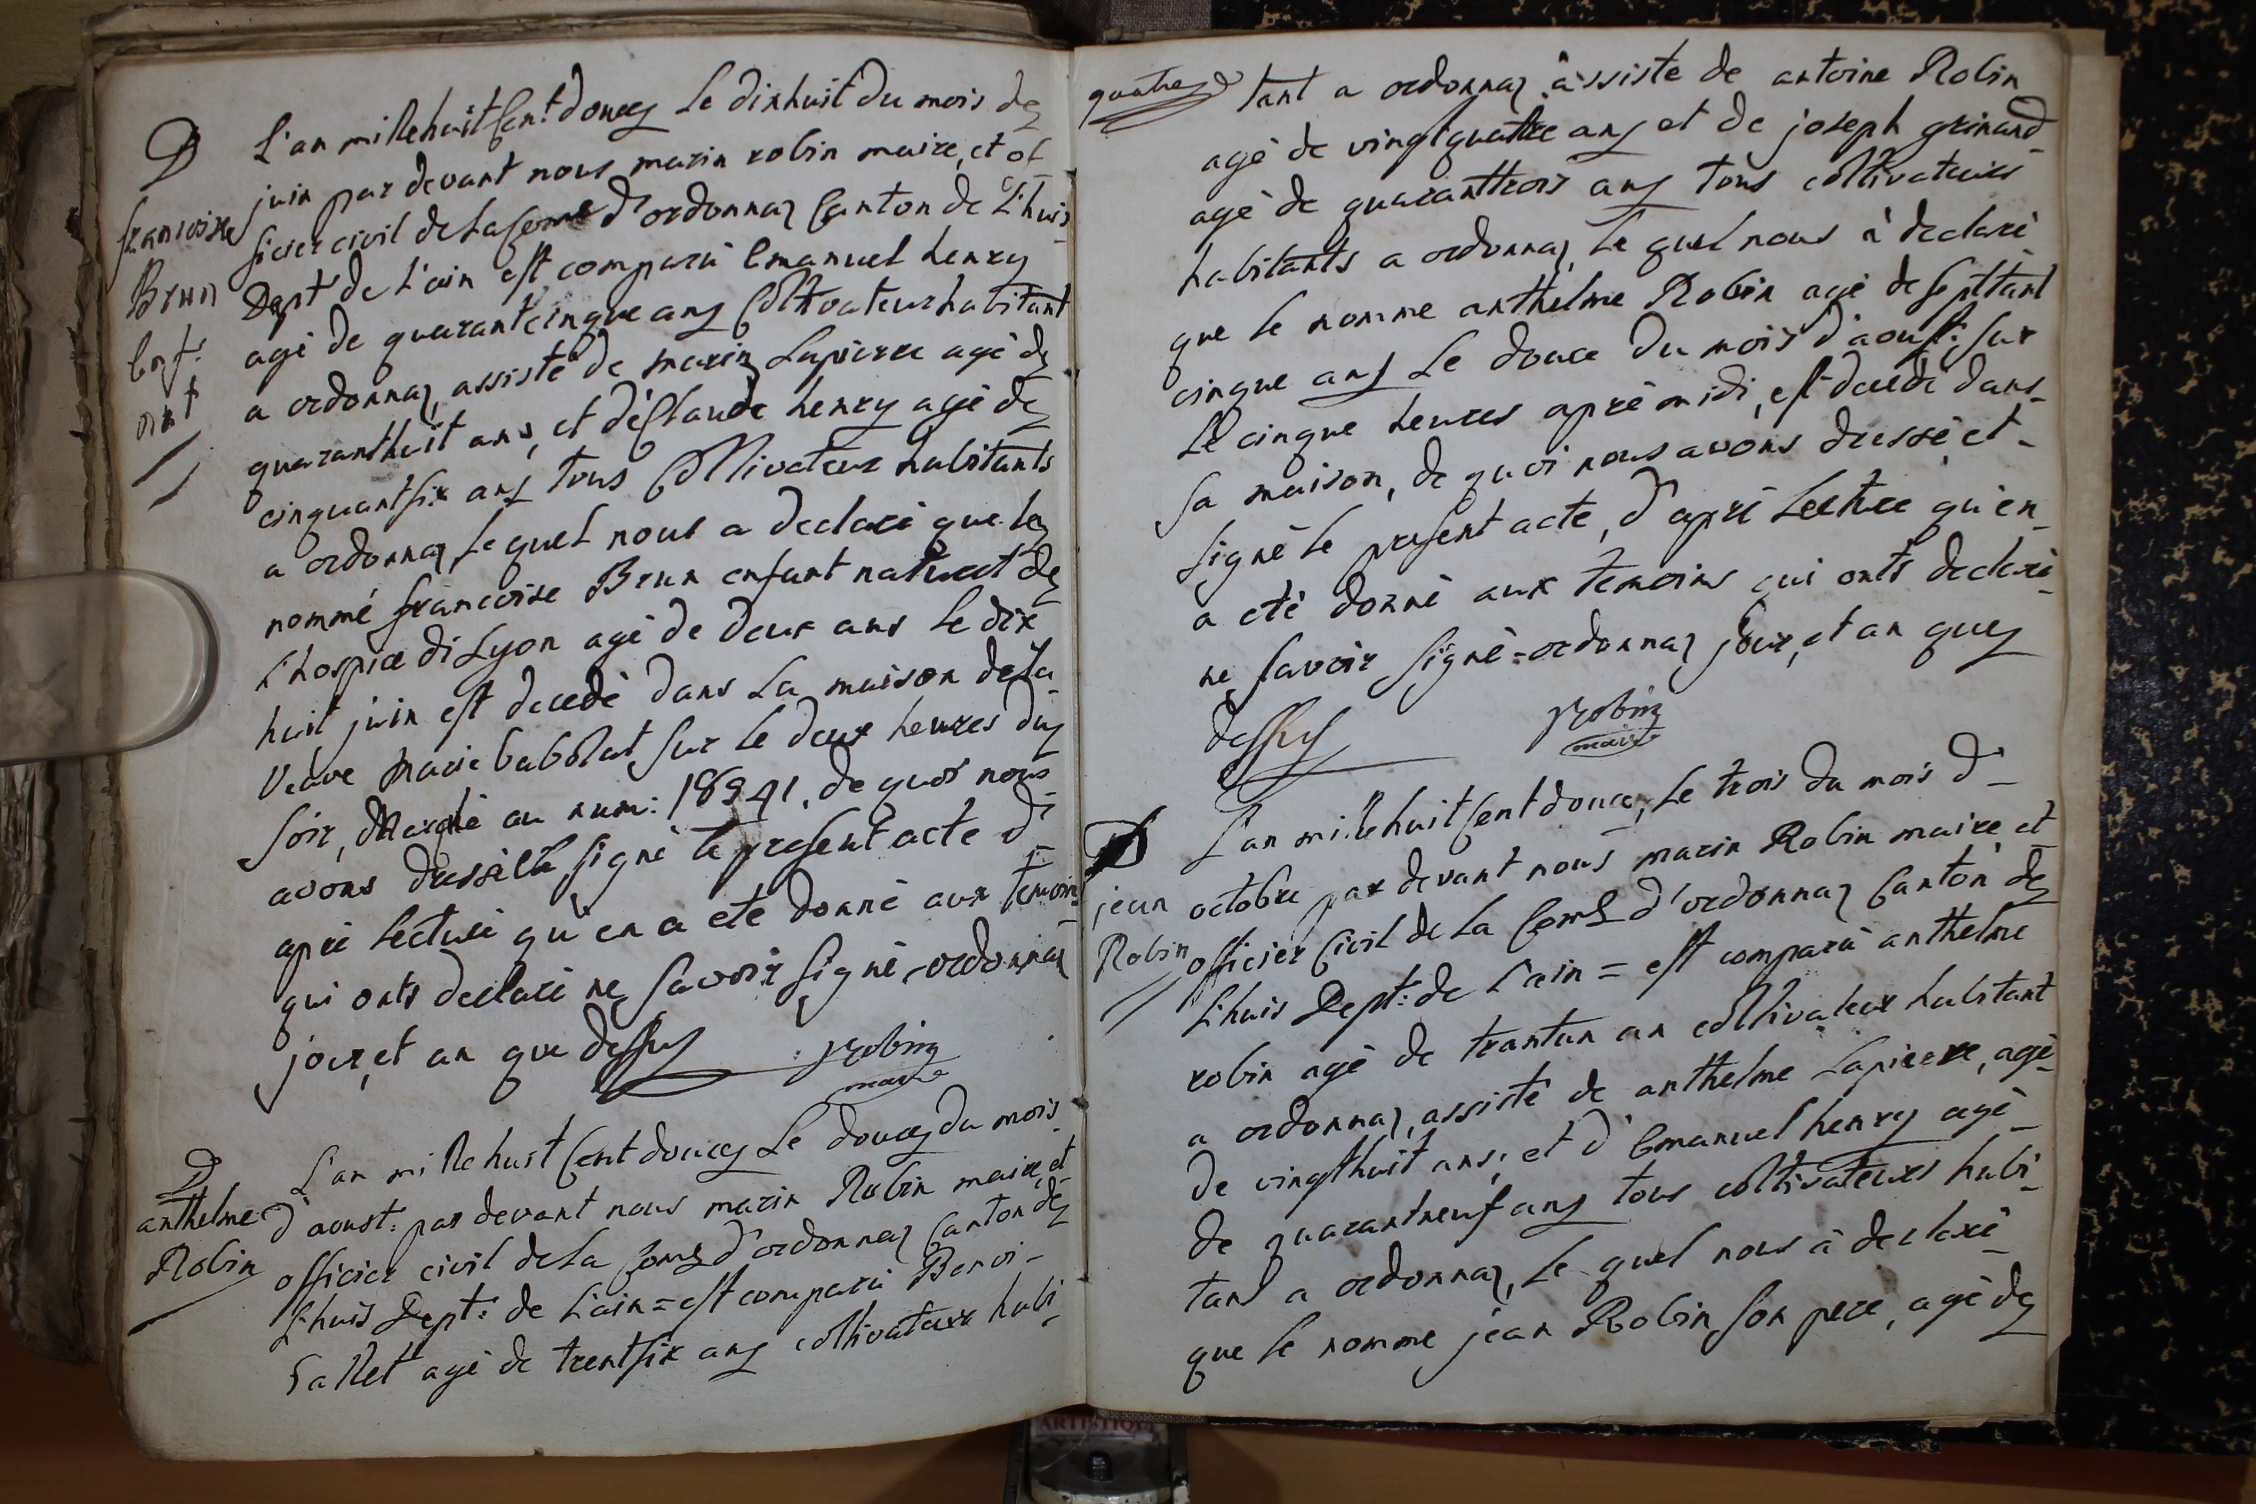 D
francoise
Brun
enf.
nat
L'an mille huit Cent doucy Le dixhuit du mois de
juin par devant nous marin robin maire, et of
ficier civil de La Come d'ordonnaz Canton de L'huis
Dept de L'ain est comparû Emanuel henry
agé de quarantcinque ans Coltivateur habitant
a ordonnaz, assisté de marin Lapierre agé de
quaranthuit ans, et de Claude henry agé de
cinquantsix ans tous Coltivateur habitants
a ordonnaz, Le quel nous a declaré que le
nommé francoise Brun enfant naturel de
L'hospice di Lyon agé de deux ans le dix
huit juin est decedé dans La maison de La
Veuve Marie babolat sur le deux heures du
soir, Marqué au num: 18941, de quoi nous
avons dressé et signé le present acte d'
aprè Lecture qu'en a eté donné aux temoins
qui onts declaré ne savoir signé, ordonnaz
jour, et an que dessus
Robin
maire
D
anthelme
Robin
L'an mille huit Cent doucy Le doucy du mois
d'aoust: par devant nous marin Robin maire, et
officier civil de La Come d'ordonnaz Canton de
L'huis Dept: de L'ain = est comparû Benoi-
Sallet agé de trentsix ans coltivateur habi-
quatre
tant a ordonnaz, assisté de antoine Robin
agé de vingtquattre ans et de joseph grinand
agé de quaranttrois ans tous coltivateurs
habitants a ordonnaz, Le quel nous à declaré
que le nomme anthelme Robin agé de septtant
cinque ans Le douce du mois d'aoust: sur
Le cinque heures aprè midi, est decedé dans
sa maison, de quoi nous avons dressé, et
signé le present acte, d'aprè Lecture qu'en
a eté donné aux temoins qui onts declaré
ne savoir signé = ordonnaz jour, et an que
dessus
Robin
maire
D
jean
Robin
L'an mille huit Cent douce, Le trois du mois d'
octobre par devant nous marin Robin maire, et
officier Civil de La Come d'ordonnaz Canton de
L'huis Dept: de L'ain = est comparû anthelme
robin agé de trantun an coltivateur habitant
a ordonnaz, assisté de anthelme Lapierre, agé
de vingthuit ans, et d'Emanuel henry agé
de quarantneuf ans tous coltivateurs habi-
tans a ordonnaz, Le quel nous à declaré
que le nomme jean Robin, son pere, agé de